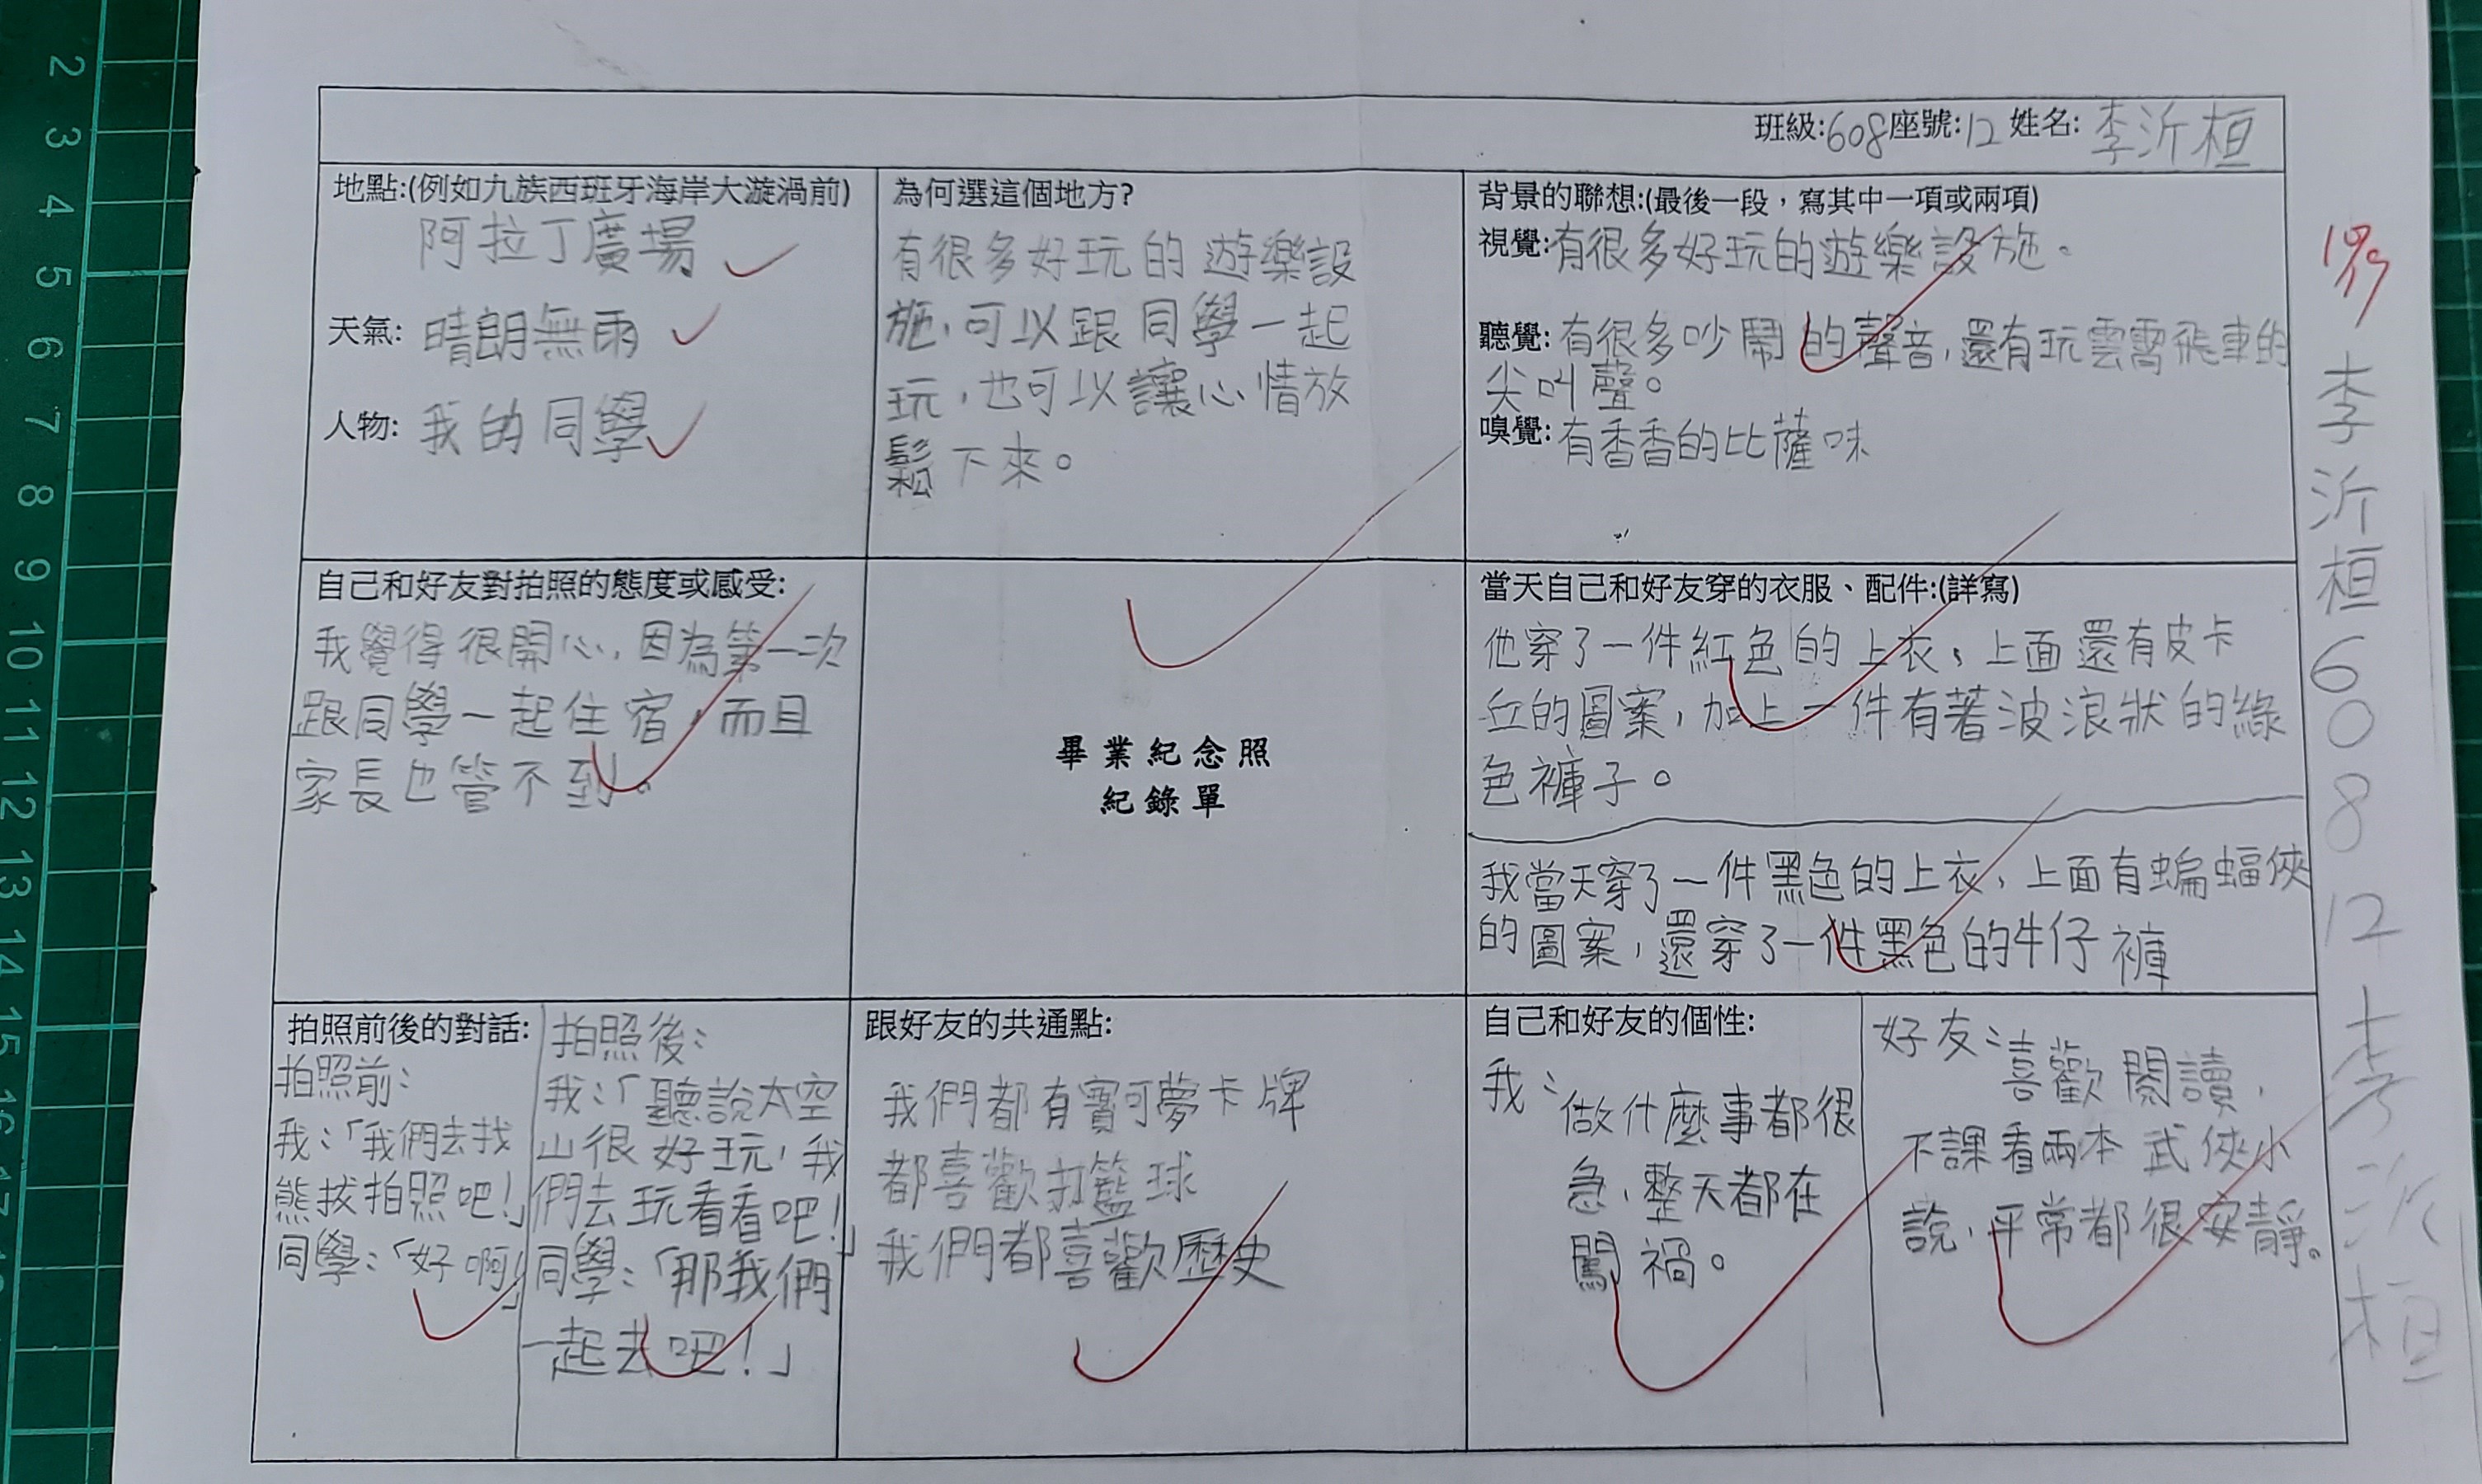 班級:608座號:12 姓名: 李沂桓
地點:(例如九族西班牙海岸大漩渦前)
阿拉丁廣場
天氣: 晴朗無雨
人物: 我的同學
為何選這個地方?
有很多好玩的遊樂設
施,可以跟同學一起
玩,也可以讓心情放
鬆下來。
背景的聯想:(最後一段,寫其中一項或兩項)
視覺:有很多好玩的遊樂設施。
聽覺:有很多吵鬧的聲音,還有玩雲霄飛車的
尖叫聲。
嗅覺:有香香的比薩味
自己和好友對拍照的態度或感受:
我覺得很開心,因為第一次
跟同學一起住宿,而且
家長也管不到。
畢業紀念照
紀錄單
當天自己和好友穿的衣服、配件:(詳寫)
他穿了一件紅色的上衣,上面還有皮卡
丘的圖案,加上一件有著波浪狀的綠
色褲子。
我當天穿了一件黑色的上衣,上面有蝙蝠俠
的圖案,還穿了一件黑色的牛仔褲
拍照前後的對話:
拍照前:
我:「我們去找
熊拔拍照吧!」
同學:「好啊」
拍照後:
我:「聽說太空
山很好玩,我
們去玩看看吧!」
同學:「那我們
一起去吧!」
跟好友的共通點:
我們都有寶可夢卡牌
都喜歡打籃球
我們都喜歡歷史
自己和好友的個性:
我:做什麼事都很
急,整天都在
闖禍。
好友:喜歡閱讀,
下課看兩本武俠小
說,平常都很安靜。
李沂桓608 12李沂桓